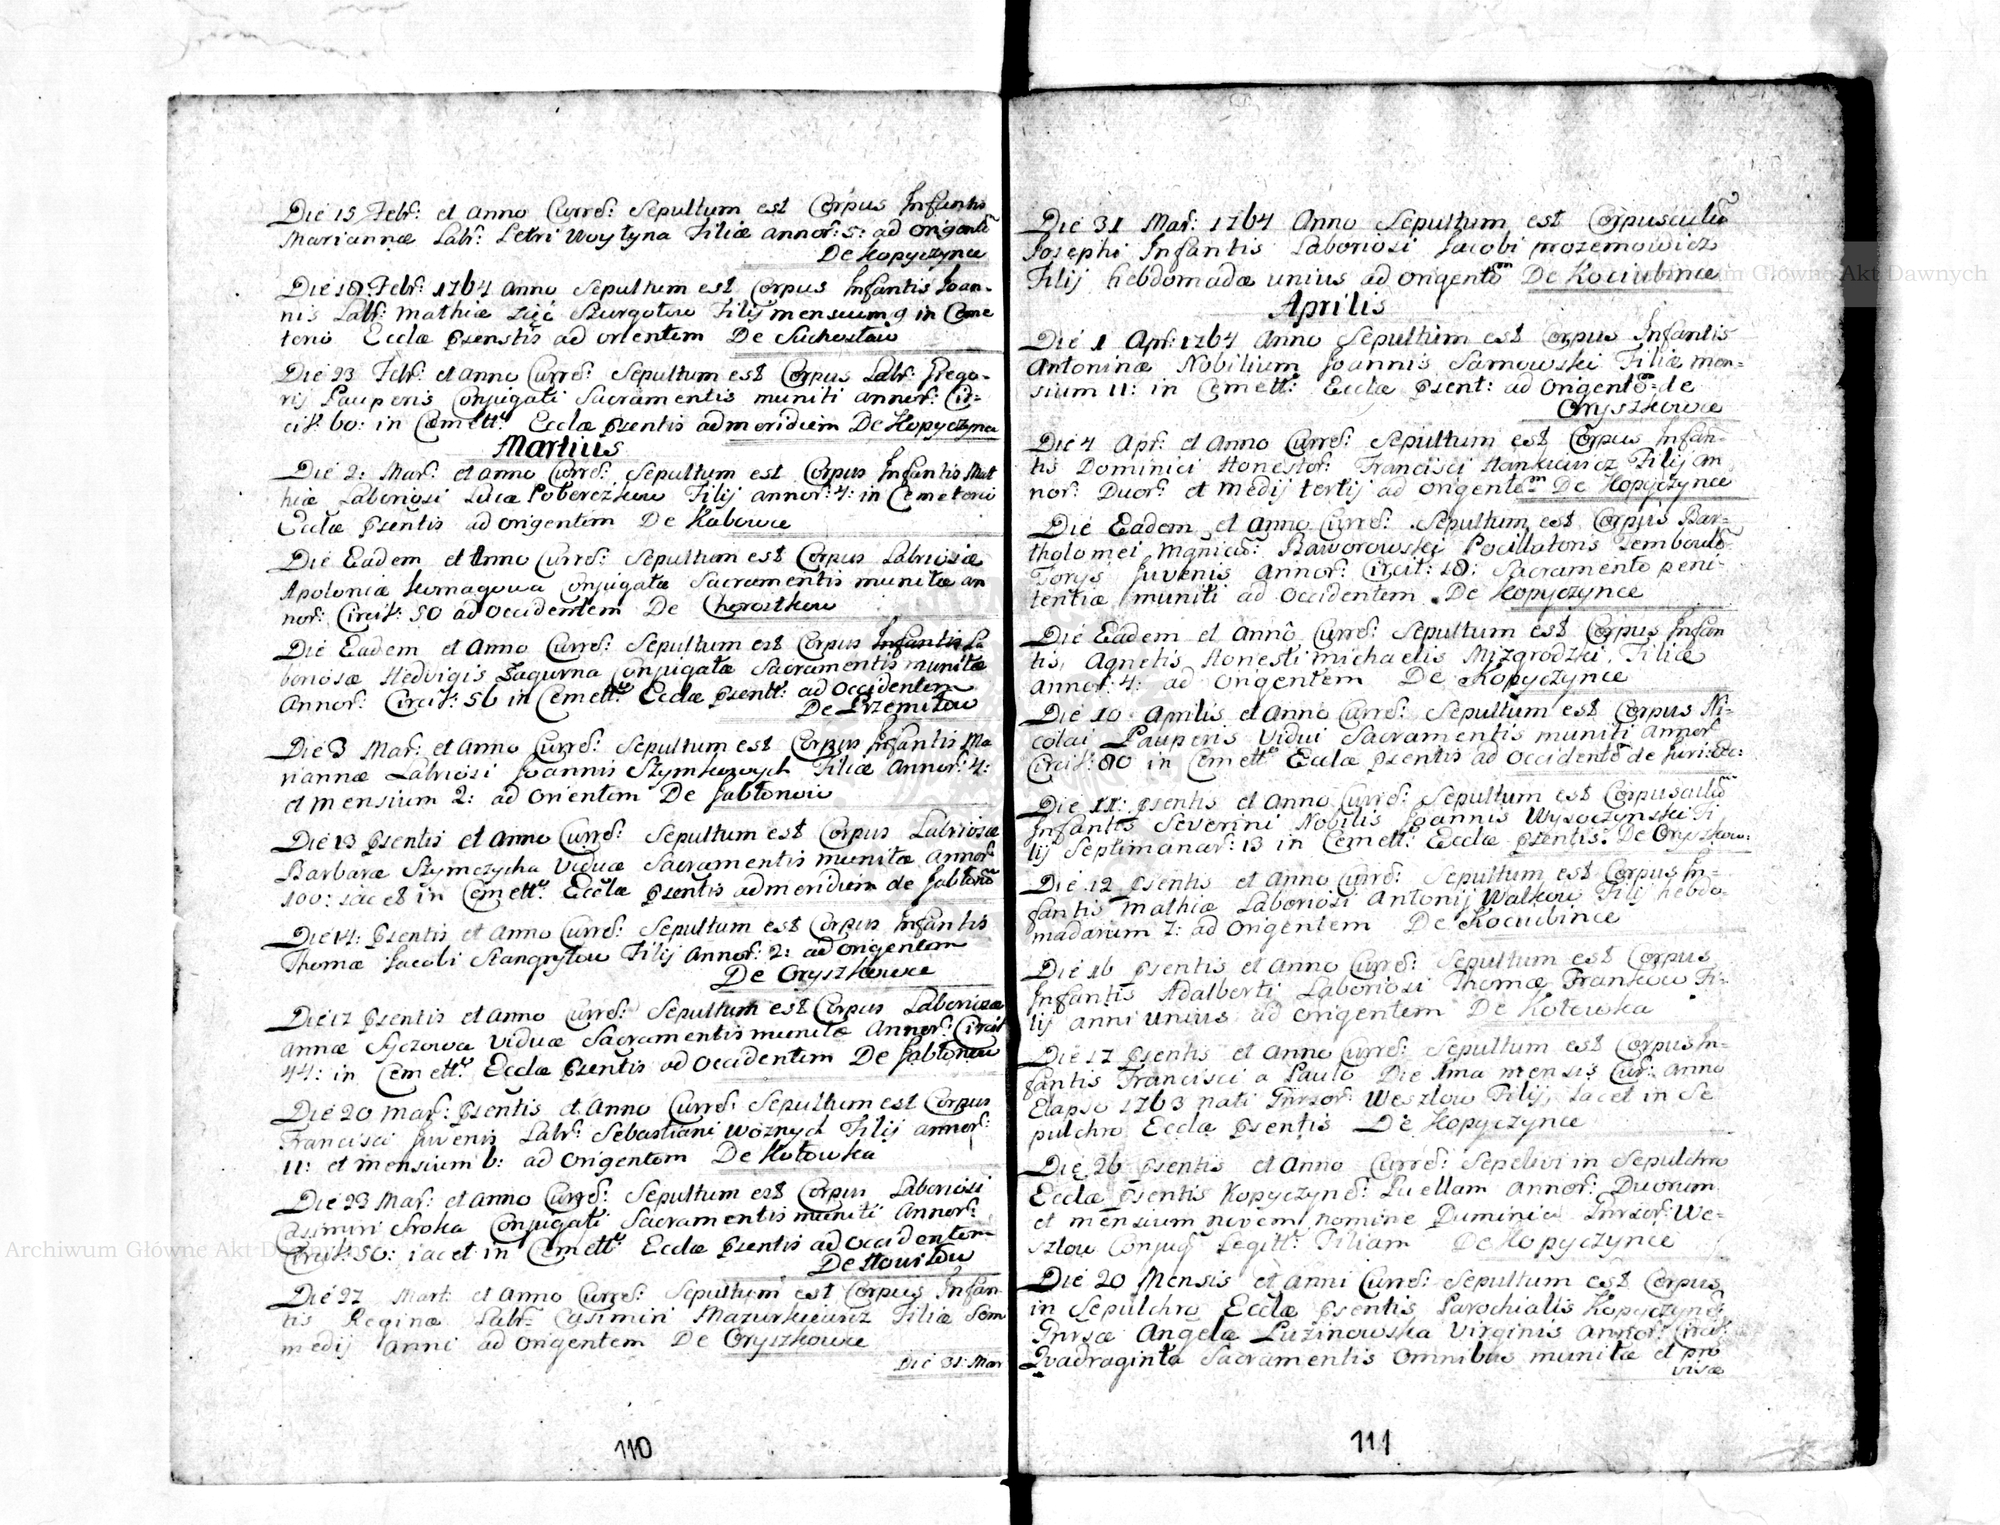 Die 15 Febr: et Anno Curre: Sepultum est Corpus Infantis
Mariannæ Labr: Petri Woytyna Filiæ annor: 5: ad origente
De Kopyczynce
Die 18 Febr: 1764 Anno Sepultum est Corpus Infantis Joan-
nis Labr: Mathiæ Szurgotow Filij mensium 9 in Ceme
terio Ecclæ Psentis ad orientem De Suchostaw
Die 23 Febr: et anno Curre: Sepultum est Corpus Labr: Grego-
rij Pauperis Conjugati Sacramentis muniti annor: Cir-
cit: 60: in Cæmett: Ecclæ Psentis ad meridiem De Kopyczynce
Martius
Die 2: Mar: et anno Curre: Sepultum est Corpus Infantis Mat
hiæ Laboriosi Lucæ Poberezkow Filij annor: 4: in Cemeterio
Ecclæ Psentis ad origentem De Kabowce
Die Eadem et Anno Curre: Sepultum est Corpus Labriosæ
Apoloniæ Homagowa Conjugatæ Sacramentis munitæ an
nor: Circit: 50 ad occidentem De Chorostkow
Die Eadem et Anno Curre: Sepultum est Corpus Infantis La
boriosæ Hedvigis Zagurna Conjugatæ Sacramentis munitæ
Annor: Circit: 56 in Cemett: Ecclæ Psentt: ad occidentem
De Przemitow
Die 3 Mar: et anno Curre: Sepultum est Corpus Infantis Ma
riannæ Labriosi Joannis Szymkowych Filiæ Annor: 4:
et mensium 2: ad orientem De Jabtonow
Die 13 Psentis et Anno Curre: Sepultum est Corpus Labriosæ
Barbaræ Szymczycha Viduæ Sacramentis munitæ Annor
100: iacet in Cemett: Ecclæ Psentis ad meridiem de Jabtono
Die 14: Psentis et Anno Curre: Sepultum est Corpus Infantis
Thomæ Jacobi Stangrytow Filij Annor: 2: ad origentem
De Oryszkowce
Die 17 Psentis et Anno Curre: Sepultum est Corpus Laboriosæ
Annæ Syczowa Viduæ Sacramentis munitæ Annor: Circit
44: in Cemett: Ecclæ Psentis ad occidentem De Jabtonow
Die 20 Mar: Psentis et Anno Curre: Sepultum est Corpus
Francisci Juvenis Labr: Sebastiani Woznych Filij annor:
11: et mensium 6: ad origentem De Kotowka
Die 23 Mar: et anno Curre: Sepultum est Corpus Laboriosi
Casimiri Sroka Conjugati Sacramentis muniti Annor:
Circit: 50: iacet in Cemett: Ecclæ Psentis ad occidentem
De Howitow
Die 27 Mart: et Anno Curre: Sepultum est Corpus Infan-
tis Reginæ Labr: Casimiri Mazurkiewicz Filiæ Sem
medij anni ad origentem De Oryszkowce
Die 31: Mar
110
Die 31 Mar: 1764 Anno Sepultum est Corpusculu
Josephi Infantis Laboriosi Jacobi Mrozemowicz
Filij hebdomadæ unius ad origentem De Kociubince
Aprilis
Die 1 Apr: 1764 Anno Sepultum est Corpus Infantis
Antoninæ Nobilium Joannis Sarnowski Filiæ men-
sium 11: in Cemett: Ecclæ Psent: ad origentem de
Oryszkowce
Die 4 Apr: et Anno Curre: Sepultum est Corpus Infan-
tis Dominici Honestor: Francisci Hankiewicz Filij an
nor: Duor: et medij tertij ad origentem De Kopyczynce
Die Eadem et Anno Curre: Sepultum est Corpus Bar-
tholomei Mgnici: Baworowski Pocillatoris
Juvenis Annor: Circit: 18: Sacramento peni-
tentiæ muniti ad occidentem De Kopyczynce
Die Eadem et Anno Curre: Sepultum est Corpus Infan
tis Agnetis Honesti Michaelis Mizgrodzki Filiæ
Annor: 4: ad origentem De Kopyczynce
Die 10 Aprilis et Anno Curre: Sepultum est Corpus Ni-
colai Pauperis Vidui Sacramentis muniti Annor
Circit: 80 in Cemett: Ecclæ Psentis ad occidente de
Die 11: Psentis et Anno Curre: Sepultum est Corpusculu
Infantis Severini Nobilis Joannis Wysoczynski Fi
lij Septimanar: 13 in Cemett: Ecclæ Psentis. De Oryszkow:
Die 12 Psentis et Anno Curre: Sepultum est Corpus In-
fantis Mathiæ Laboriosi Antonij Walkow Filij hebdo-
madarum 7: ad origentem De Kociubince
Die 16 Psentis et Anno Curre: Sepultum est Corpus
Infantis Adalberti Laboriosi Thomæ Frankow Fi-
lij anni unius ad origentem De Kotowka
Die 17 Psentis et Anno Curre: Sepultum est Corpus In-
fantis Francisci a Paulo Die mensis Cur: anno
Elapso 1763 nati Weszlow Filij, iacet in Se
pulchro Ecclæ Psentis De Kopyczynce
Die 26 Psentis et Anno Curre: Sepelivi in Sepulchro
Ecclæ Psentis Kopyczyn: Puellam Annor: Duorum
et mensium novem nomine Dominica We-
szlow Conjug Legitt: Filiam De Kopyczynce
Die 20 Mensis et Anni Curre: Sepultum est Corpus
in Sepulchro Ecclæ Psentis Parochialis Kopyczyne
Angelæ Luzinowska Virginis Annor: Circit:
Quadraginta Sacramentis omnibus munitæ et pro
visæ
111
Archiwum Główne Akt Dawnych